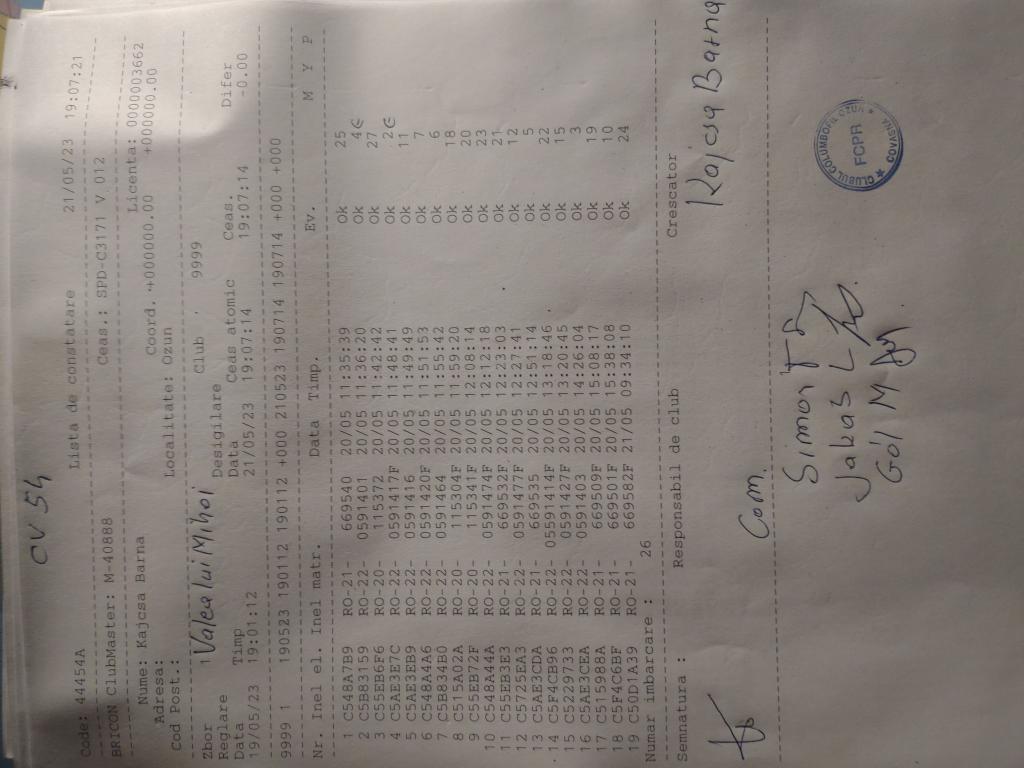 CV 54
Code: 44454A Lista de constatare 21/05/23 19:07:21
BRICON ClubMaster: M-40888 Ceas.: SPD-C3171 V 012
Nume: Kajcsa Barna Licenta: 0000003662
Adresa: Coord. +000000.00 +0000000.00
Cod Post.: Localitate: Ozun
Zbor 1 Valea lui Mihai Club 9999
Reglare Desigilare
Data Timp Data Ceas atomic Ceas. Difer
19/05/23 19:01:12 21/05/23 19:07:14 19:07:14 -0.00
9999 1 190523 190112 190112 +000 210523 190714 190714 +000 +000
Nr. Inel el. Inel matr. Data Timp. Ev. M Y P
1 C548A7B9 RO-21- 669540 20/05 11:35:39 Ok 25
2 C5B83159 RO-22- 0591401 20/05 11:36:20 Ok 4
3 C55EB6F6 RO-20- 115372 20/05 11:42:42 Ok 27
4 C5AE3E7C RO-22- 0591417F 20/05 11:48:41 Ok 2
5 C5AE3EB9 RO-22- 0591416 20/05 11:49:49 Ok 11
6 C548A4A6 RO-22- 0591420F 20/05 11:51:53 Ok 7
7 C5B834B0 RO-22- 0591464 20/05 11:55:42 Ok 6
8 C515A02A RO-20- 115304F 20/05 11:59:20 Ok 18
9 C55EB72F RO-20- 115341F 20/05 12:08:14 Ok 20
10 C548A44A RO-22- 0591474F 20/05 12:12:18 Ok 23
11 C55EB3E3 RO-21- 669532F 20/05 12:23:03 Ok 21
12 C5725EA3 RO-22- 0591477F 20/05 12:27:41 Ok 12
13 C5AE3CDA RO-21- 669535 20/05 12:51:14 Ok 5
14 C5F4CB96 RO-22- 05591414F 20/05 13:18:46 Ok 22
15 C5229733 RO-22- 0591427F 20/05 13:20:45 Ok 15
16 C5AE3CEA RO-22- 0591403 20/05 14:26:04 Ok 3
17 C515988A RO-21- 669509F 20/05 15:08:17 Ok 19
18 C5F4C6BF RO-21- 669501F 20/05 15:38:08 Ok 10
19 C50D1A39 RO-21- 669582F 21/05 09:34:10 Ok 24
Numar imbarcare : 26
Semnatura : Responsabil de club Crescator
Kajcsa Barna
Com.
Simon
Jakab L
Gól M
CLUBUL COLUMBOFIL OZUN
FCPR
COVASNA